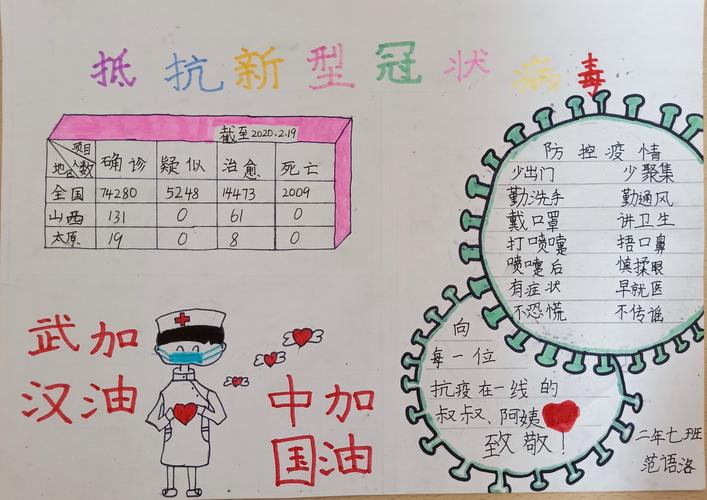 抵抗新型冠状病毒
截至2020.2.19
项目 人数 地点 确诊 疑似 治愈 死亡
全国 74280 5248 14473 2009
山西 131 0 61 0
太原 19 0 8 0
防控疫情
少出门 少聚集
勤洗手 勤通风
戴口罩 讲卫生
打喷嚏 捂口鼻
喷嚏后 慎揉眼
有症状 早就医
不恐慌 不传谣
武汉加油
中国加油
向
每一位
抗疫在一线的
叔叔、阿姨
致敬!
二年七班
范语洛